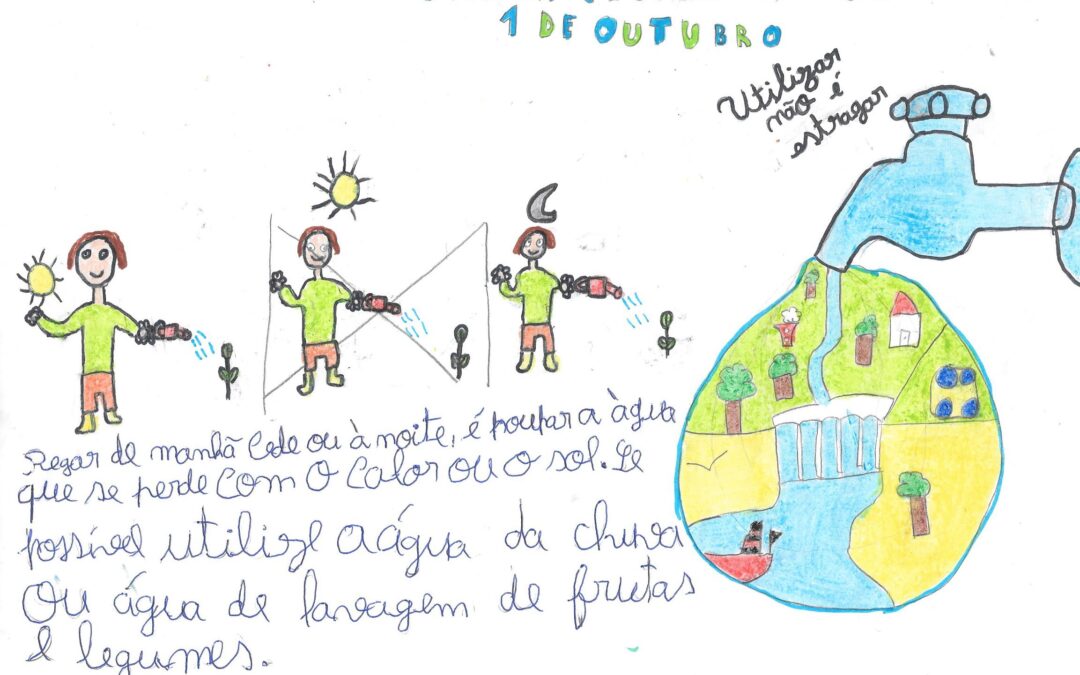 1 DE OUTUBRO
Utilizar
não é
estragar
Regar de manhã cedo ou à noite, é poupar a àgua
que se perde com o calor ou o sol. Se
possível utilize a água da chuva
ou água de lavagem de frutas
e legumes.